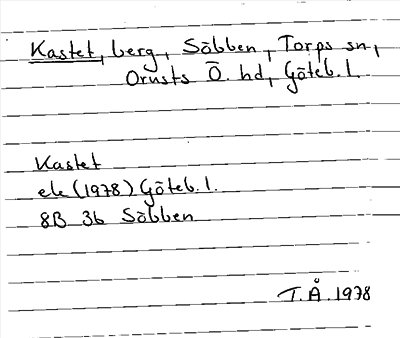 Kastet, berg, Säbben, Torps sn,
Orusts Ö. hd, Göteb. l.
Kastet
ek (1978) Göteb. l.
8B 3b Säbben
T. Å. 1978